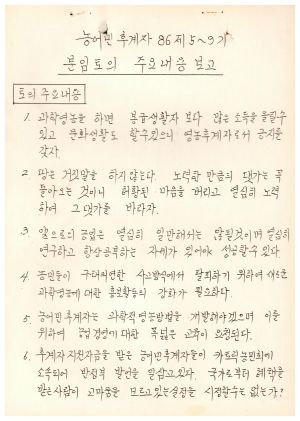 농어민 후계자 86 제 5~9기
분임토의 주요내용 보고
토의 주요내용
1. 과학영농을 하면 봉급생활자 보다 많은 소득을 올릴수
있고 문화생활도 할수있으니 영농후계자로서 긍지를
갖자.
2. 땅은 거짓말을 하지않는다. 노력한 만큼의 댓가는 꼭
돌아오는 것이니 허황된 마음을 버리고 열심히 노력
하여 그 댓가를 바라자.
3. 앞으로의 농업은 열심히 일만해서는 않될것이며 열심히
연구하고 항상공부하는 자세가 있어야 성공할수 있다.
4. 농민들이 구태의연한 사고방식에서 탈피하기 위하여 새로운
과학영농에 대한 홍보활동의 강화가 필요하다.
5. 농어민후계자는 과학적영농방법을 개발해야겠으며 이를
위하여 농업경영에 대한 폭넓은 교육이 요청된다.
6. 후계자 지원자금을 받은 농어민후계자들이 카토릭농민회에
소속되어 반정부 발언을 일삼고있다. 국가로부터 혜택을
받은사람이 고마움을 모르고있는실정을 시정할수는 없는가?